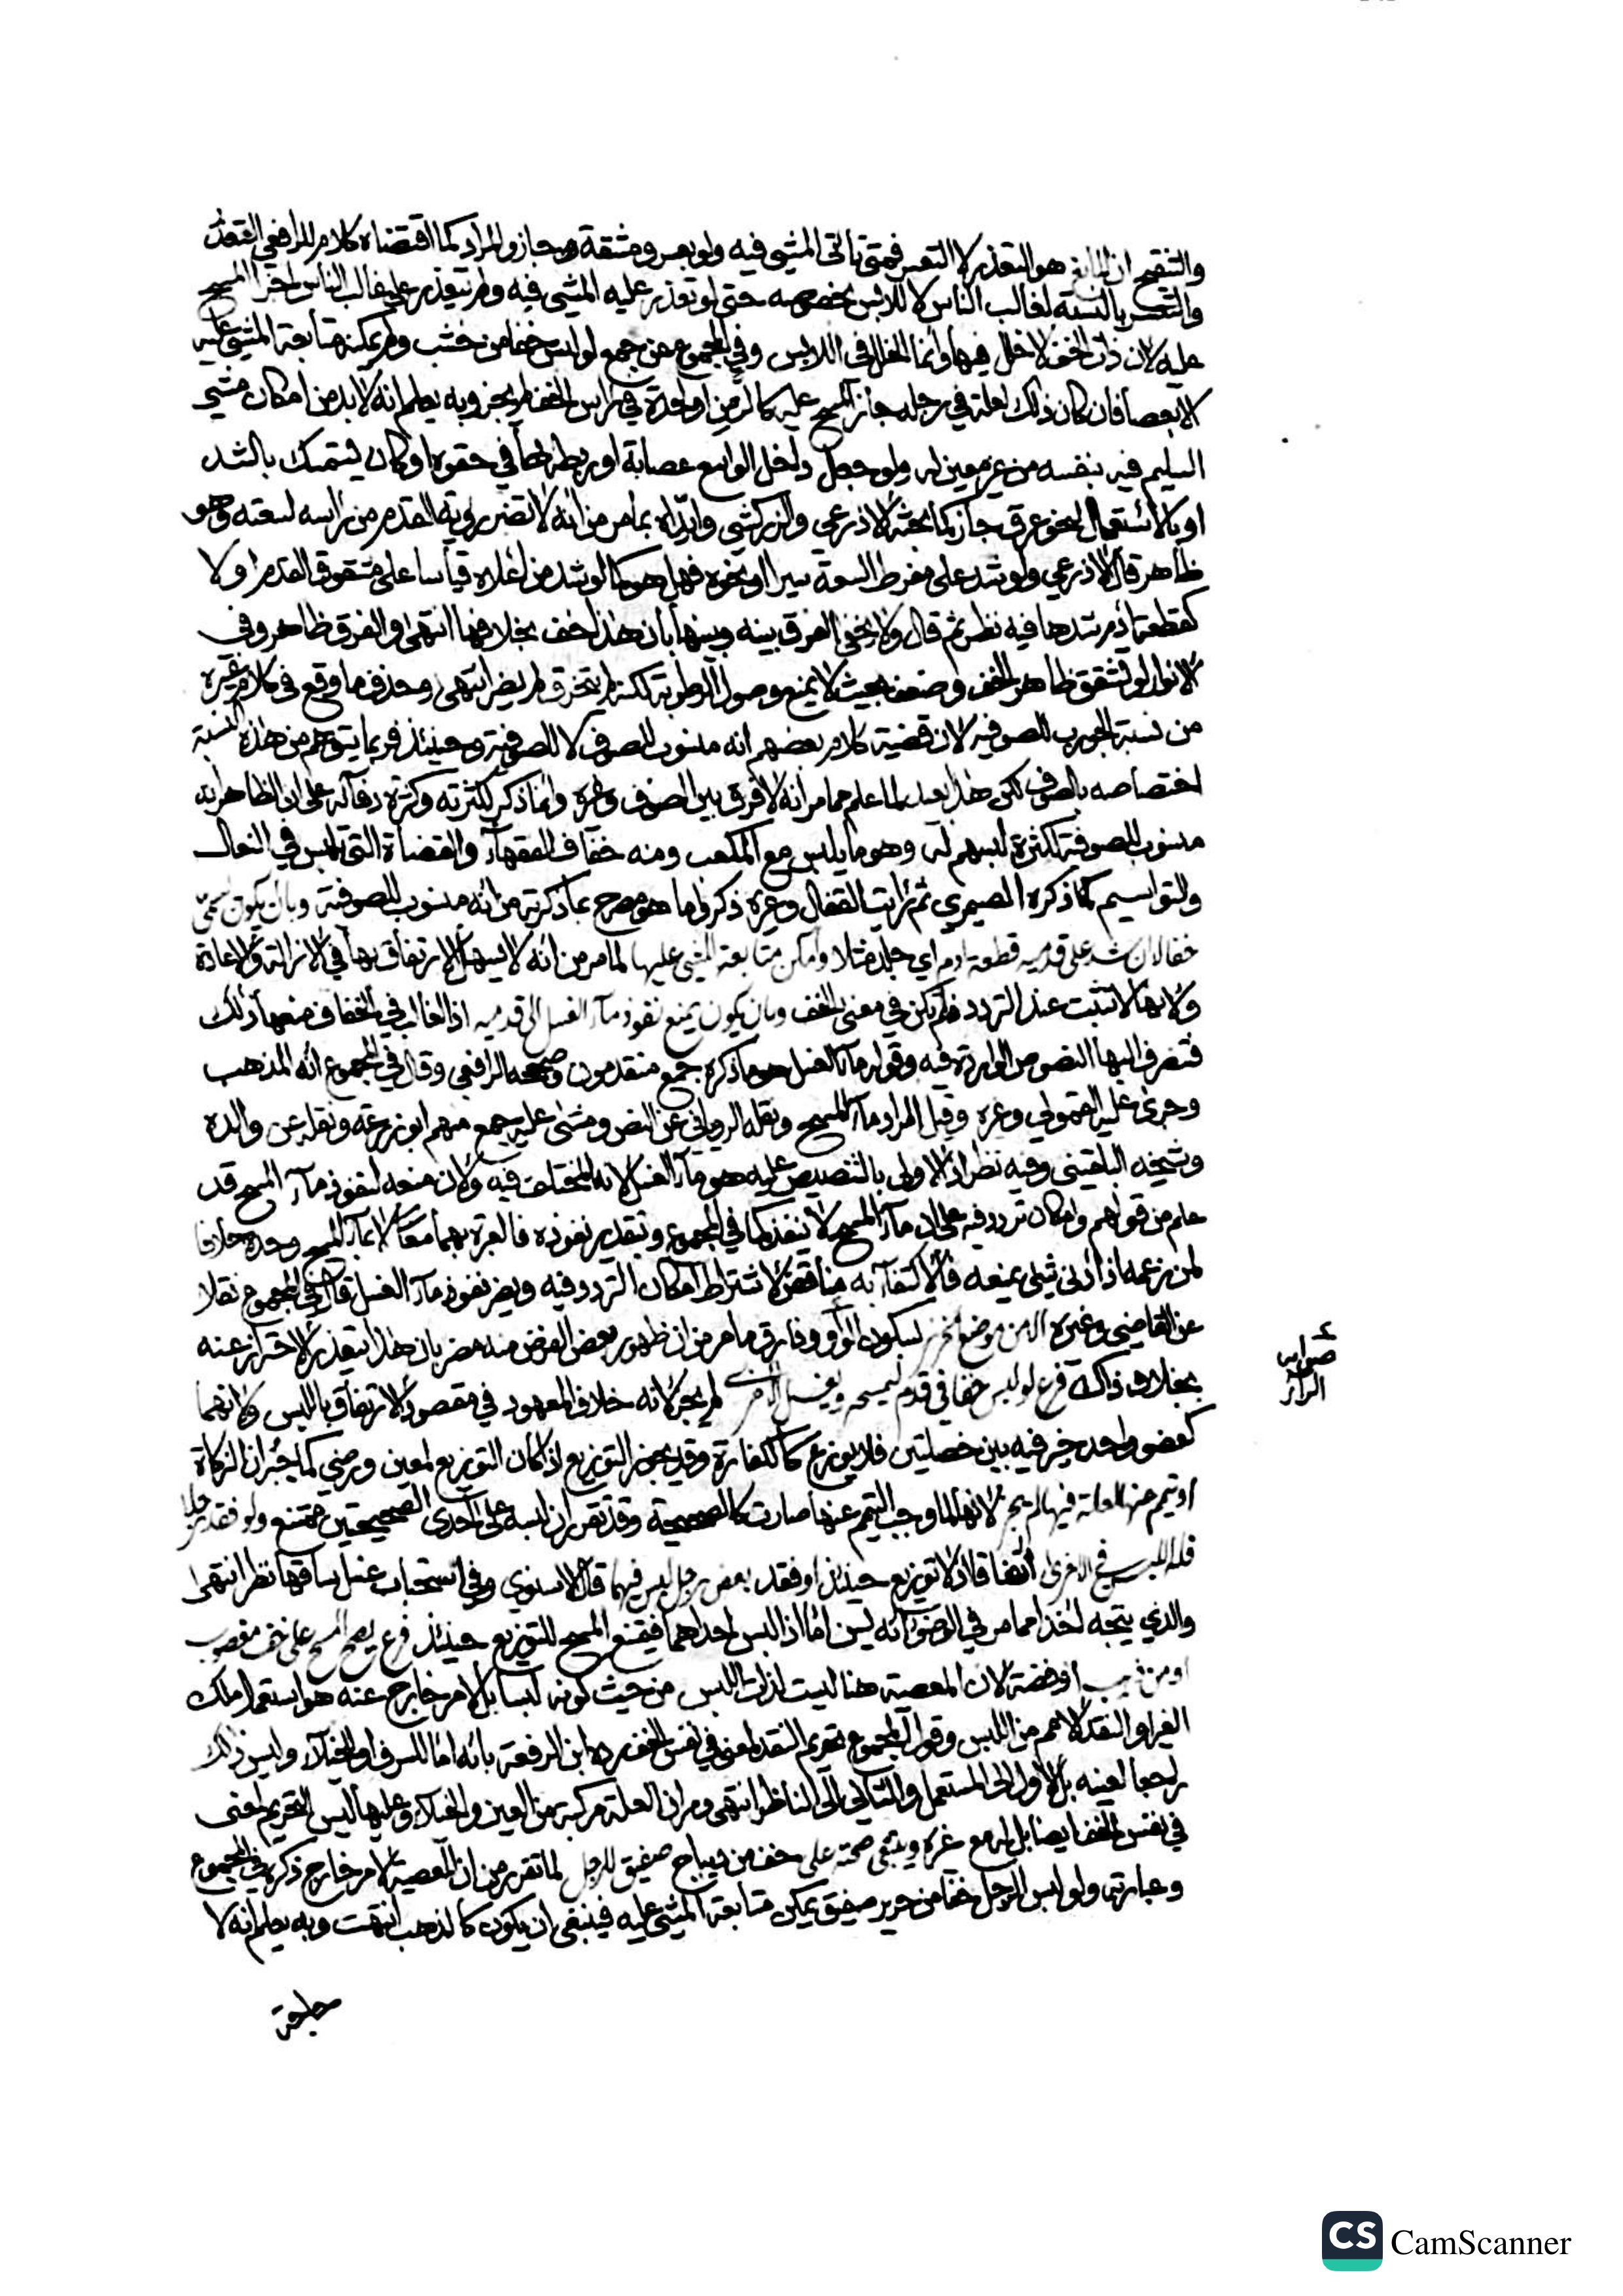 والتنقيح ان المانع هو التعذر لا التعسر فمتى تأتى المشي فيه ولو بعسر ومشقة جاز والمراد كما اقتضاه كلام الرافعي التعذر
والتعسر بالنسبة لغالب الناس لا للابس بخصوصه حتى لو تعذر عليه المشي فيه ولم يتعذر على غالب الناس اجزأ المسح
عليه لان ذات الخف لا خلل فيها وانما الخلل في اللابس وفي المجموع عن جمع لو لبس خفا من خشب ولم يمكنه متابعة المشي عليه
الا بعصا فان كان ذلك لعلة في رجله جاز المسح عليه كالزمن او لحدة في راس الخف لم يجز وبه يعلم انه لا بد من امكان مشي
السليم فيه بنفسه من غير معين له ولو جعل داخل الواسع عصابة او ربطها في حقوه او كان يستمسك بالشد
او بالاشتمال لنحو عرق جاز كما بحثه الاذرعي والزركشي وايداه بما مر من انه لا تضر رؤية القدم من رأسه لسعته وهو
ظاهر قال الاذرعي ولو شد على مفرط السعة سيرا او نحوه فهل هو كما لو شد من اعلاه قياسا على مشقوق القدم او لا
كقطعة أدم شدها فيه نظر ثم قال ولا يخفى الفرق بينه وبينها بأن هذا خف بخلافها انتهى والفرق ظاهر وفي
الانوار لو تشقق ظاهر الخف وضعف بحيث لا يمنع وصول الرطوبة لكنه لم يتخرق لم يضر انتهى وحذف ما وقع في كلام غيره
من نسبة الجورب للصوفية لان قضية كلام بعضهم انه منسوب للصوف لا للصوفية وحينئذ فربما يتوهم من هذه النسبة
اختصاصه بالصوف لكن هذا بعيد لما علم مما مر انه لا فرق بين الصوف وغيره وانما ذكر لكثرته وكثرة على ان الظاهر انه
منسوب للصوفية لكثرة لبسهم له وهو ما يلبس مع المكعب ومنه خفاف الفقهاء والقضاة التي تلبس في النعال
والتواسيم كما ذكره الصيمري ثم رأيت القفال وغيره ذكروا ما هو مصرح بما ذكرته من انه منسوب للصوفية وبأن يكون يسمى
خفا لا ان شد على قدميه قطعة ادم اي جلد مثلا وأمكن متابعة المشي عليها لما مر من انه لا يسهل الارتفاق بها في الازالة والاعادة
ولانها لا تثبت عند التردد فلم تكن في معنى الخف وبان يكون يمنع نفوذ ماء الغسل الى قدميه اذ الغالب في الخفاف منعها ذلك
فتنصرف اليها النصوص الواردة فيه وقوله ماء الغسل هو ما ذكره جمع متقدمون وصححه الرافعي وقال في المجموع انه المذهب
وجرى عليه القمولي وغيره وقيل المراد ماء المسح ونقله الروياني عن النص ومشى عليه جمع منهم ابو زرعة ونقله عن والده
وشيخه البلقيني وفيه نظر اذ الاولى بالتنصيص عليه هو ماء الغسل لانه المختلف فيه ولان منعه لنفوذ ماء المسح قد
علم من قولهم وامكان تردد فيه على ان ماء المسح لا ينفذ كما في المجموع وبتقدير نفوذه فالعبرة بهما معا لا بماء المسح وحده خلافا
لمن زعمه اذ ادنى شيء يمنعه فالاكتفاء به مناقض لاشتراط امكان التردد فيه ويضر نفوذ ماء الغسل قال في المجموع نقلا
عن القاضي وغيره الا من موضع الخرز بسكون الراء وفارق ما مر من ان ظهور بعض الفرض منه مضر بان هذا يتعذر الاحتراز عنه
بخلاف ذاك فرع لو لبس خفا في قدم ليمسحه ويغسل الاخرى لم يجز لانه خلاف المعهود في مقصود الارتفاق باللبس ولانهما
كعضو واحد خير فيه بين خصلتين فلا يوزع كالكفارة وقد يجوز التوزيع اذا كان التوزيع لمعين ورضي كما جبران الزكاة
او تيمم عنها لعلة فيها لم يجز لانها لما وجب التيمم عنها صارت كالصحيحة وقد تقرر ان لبسه على احدى الصحيحتين ممتنع ولو فقد رجلا
فله اللبس في الاخرى اتفاقا اذ لا توزيع حينئذ او فقد بعض رجل لبس فيهما قال الاسنوي وفي استحباب غسل ساقها نظر انتهى
والذي يتجه اخذا مما مر في الوضوء انه يسن اما اذا لبس احداهما فيمتنع المسح للتوزيع حينئذ فرع يصح المسح على خف مغصوب
او من ذهب او فضة لان المعصية هنا ليست لذات اللبس من حيث كونه لبسا بل لامر خارج عنه هو استعمال ملك
الغير او النقد الاعم من اللبس وقول المجموع تحريم النقد لمعنى في نفس الخف رده ابن الرفعة بانه اما للسرف او الخيلاء وليس ذلك
راجعا لعينه بل الاول الى المستعمل والثاني الى الناظر انتهى ومر ان العلة مركبة من العين والخيلاء وعليها ليس التحريم لمعنى
في نفس الخف ايضا بل له مع غيره وينبغي صحته على خف من ديباج صفيق للرجل لما تقرر من ان المعصية لامر خارج ذكره في المجموع
وعبارته ولو لبس الرجل خفا من حرير صفيق يمكن متابعة المشي عليه فينبغي ان يكون كالذهب انتهت وبه يعلم انه لا
صوابه
الزاز
CS CamScanner